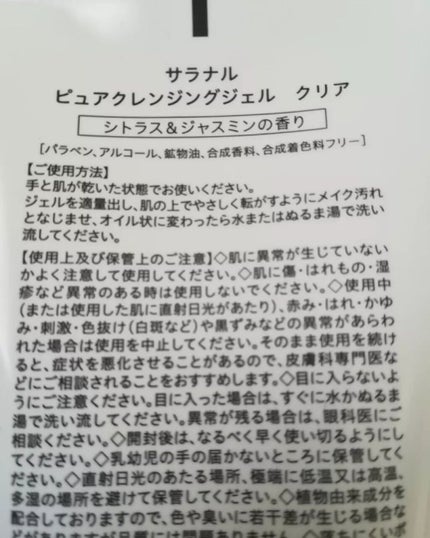 サラナル
ピュアクレンジングジェル　クリア
シトラス&ジャスミンの香り
[パラベン、アルコール、鉱物油、合成香料、合成着色料フリー]
【ご使用方法】
手と肌が乾いた状態でお使いください。
ジェルを適量出し、肌の上でやさしく転がすようにメイク汚れ
となじませ、オイル状に変わったら水またはぬるま湯で洗い
流してください。
【使用上及び保管上のご注意】◇肌に異常が生じていない
かよく注意して使用してください。◇肌に傷・はれもの・湿
疹など異常のある時は使用しないでください。◇使用中
(または使用した肌に直射日光があたり)、赤み・はれ・かゆ
み・刺激・色抜け(白斑など)や黒ずみなどの異常があらわ
れた場合は使用を中止してください。そのまま使用を続け
ると、症状を悪化させることがあるので、皮膚科専門医な
どにご相談されることをおすすめします。◇目に入らないよ
うにご注意ください。目に入った場合は、すぐに水かぬるま
湯で洗い流してください。異常が残る場合は、眼科医にご
相談ください。◇開封後は、なるべく早く使い切るようにし
てください。◇乳幼児の手の届かないところに保管してく
ださい。◇直射日光のあたる場所、極端に低温又は高温、
多湿の場所を避けて保管してください。◇植物由来成分を
配合しておりますので、色や臭いに若干差が生じる場合な
どがありますが品質には問題ありません。◇落ちにくいポ